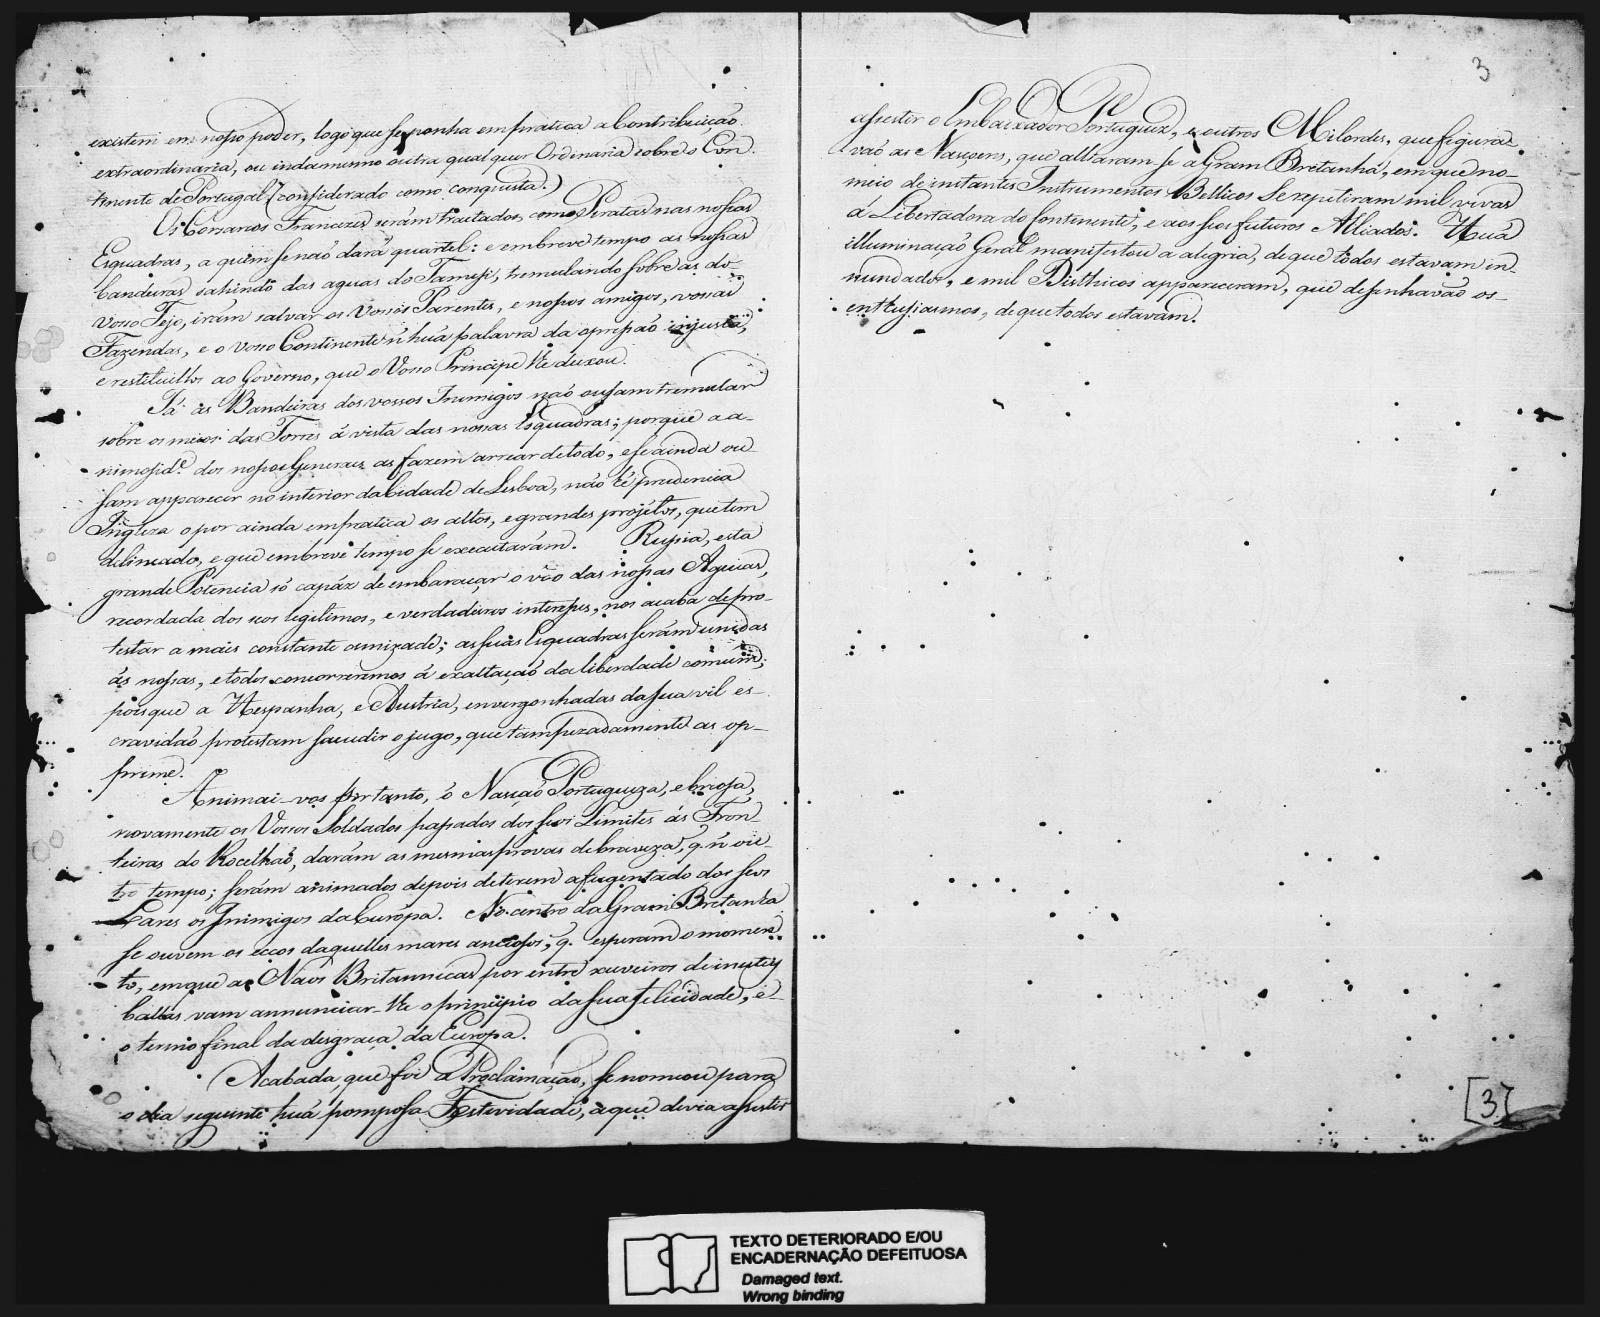 existem em nosso poder, logo que se ponha em pratica a Contribuição
extraordinaria, ou inda mesmo outra qualquer Ordinaria sobre o Con-
tinente de Portugal (considerado como conquista.)
Os Corsarios Francezes serám tractados como Piratas nas nossas
Esquadras, a quem se naõ dará quartel: e em breve tempo as nossas
bandeiras sahindo das aguas do Tamesi, tremulando sobre as do
Vosso Tejo, irám salvar os Vossos Parentes, e nossos amigos, vossas
Fazendas, e o Vosso Continente n'huã palavra da opressaõ injusta,
e restituillos ao Governo, que o Vosso Principe lhe deixou.
Já as Bandeiras dos vossos Inimigos naõ ousam tremular
sobre os meios das Torres á vista das nossas Esquadras; porque a a-
nimosid.e dos nossos Generaes as fazem arrear de todo, e se ainda ou-
sam apparecer no interior da Cidade de Lisboa, não hé prudencia
Ingleza o por ainda em pratica os altos, e grandes projétos, que tem
delineado, e que em breve tempo se executarám. Russia, esta
grande Potencia só capáz de embaraçar o vôo das nossas Aguias,
recordada dos seos legitimos, e verdadeiros interesses, nos acaba de pro-
testar a mais constante amizade; as suas Esquadras serám unidas
ás nossas, e todos concorreremos á exaltaçaõ da liberdade comum;
pois que a Hespanha, e Austria, envergonhadas da sua vil es-
cravidaõ protestam sacudir o jugo, que tam pezadamente as op-
prime.
Animai-vos portanto, ó Nasçaõ Portugueza, e briosa,
novamente os Vossos Soldados passados dos seos Limites ás Fron-
teiras do Rocelhaõ, darám as mesmas provas de braveza, q. n'ou-
tro tempo; serám animados depois de terem afugentado dos seos
Lares os Inimigos da Európa. No centro da Gram Bretanha
se ouvem os eccos daquelles mares anciosos, q. esperam o momen-
to, em que as Náos Britannicas por entre xuveiros de
ballas vam annunciar-lhe o principio da sua felicidade, e
o termo final da desgraça da Europa.
Acabada que foi a Proclamaçaõ, se nomeou para
o dia seguinte huã pomposa Festividade, a que devia assistir
3
assestir o Embaixador Portuguez, e outros Milordes, que figura-
vaõ as Nasçoens, que alliaram-se a Gram Bretanha, em que no
meio de instantes Instrumentos Bellicos se repetiram mil vivas
á Libertadora do Continente, e aos seos futuros Alliados. Huã
illuminaçaõ Geral manifestou a alegria, de que todos estavam in-
nundados, e mil Disthicos appareceram, que desenhavaõ os
enthusiasmos, de que todos estavam.
[3]
TEXTO DETERIORADO E/OU
ENCADERNAÇÃO DEFEITUOSA
Damaged text.
Wrong binding